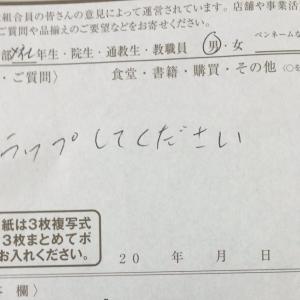 組合員の皆さんの意見によって運営されています。店舗や事業活
ご質問や品揃えのご要望などをお寄せください。
ペンネームな
部 年生・院生・通教生・教職員 男・女
・ご質問〉 食堂・書籍・購買・その他 〈○を
ラップしてください
紙は3枚複写式
3枚まとめてポ
お入れください。
20 年 月 日
欄〉